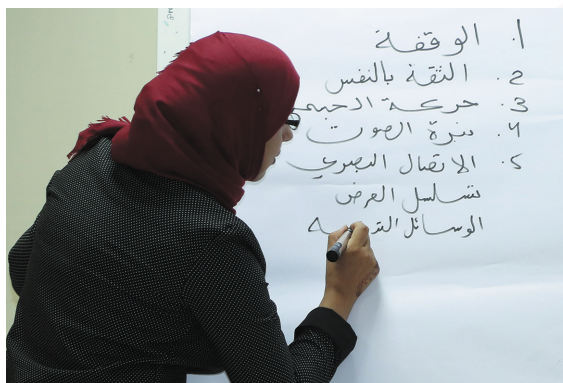 1. الوقفة
2. الثقة بالنفس
3. حركة
4. نبرة الصوت
5. الاتصال البصري
تسلسل العرض
الوسائل